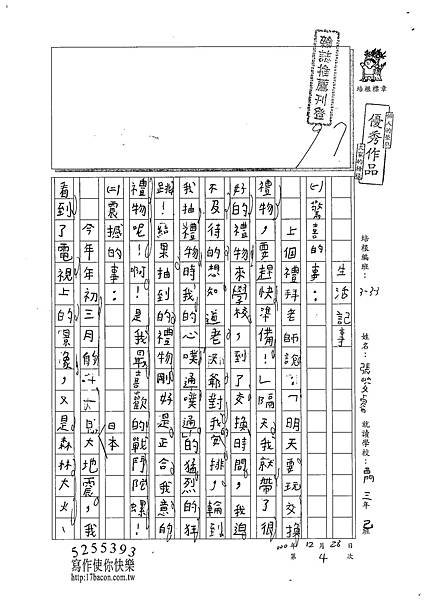 生活記事
(一)驚喜的事：
上個禮拜老師說：「明天要玩交換
禮物，要趕快準備！」隔天我就帶了很
好的禮物來學校，到了交換時間，我迫
不及待的想知道老天爺對我的安排，輪到
我抽禮物時我的心噗通噗通的猛烈的狂
跳！結果抽到的禮物剛好是正合我意的
禮物呢！啊！是我最喜歡的戰鬥陀螺！
(二)震撼的事：
今年年初三月的 日本大地震，我
看到了電視上的景象，又是森林大火、
翰誌推薦刊登
97
培根標章
個人的榮兆
優秀作品
培根編班：
3-33
姓名：
就讀學校：西門 三年 己班
100年12月28日
第4次
5255393
寫作使你快樂
http://17bacon.com.tw